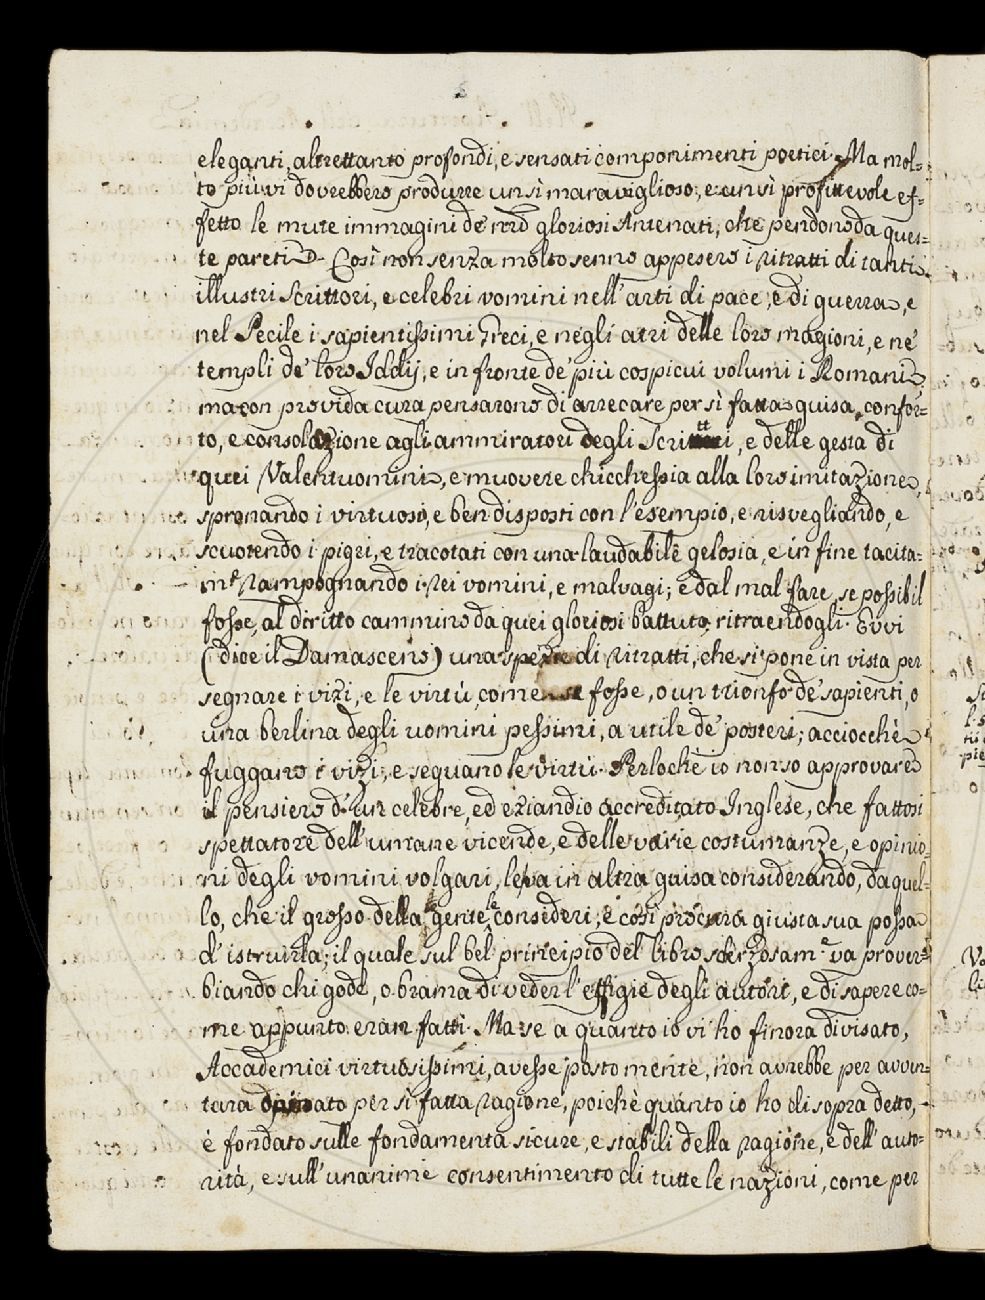 eleganti, altrettanto profondi, e sensati componimenti poetici. Ma mol=
to più vi dovrebbero produrre un sì maraviglioso, e un sì profittevole ef=
fetto le mute immagini de' nrĩ gloriosi Antenati, che pendono da ques=
te pareti. Così non senza molto senno appesero i ritratti di tanti
illustri Scrittori, e celebri vomini nell'arti di pace, e di guerra, e
nel Pecile i sapientissimi Greci, e negli atri delle loro magioni, e ne'
templi de' loro Iddij, e in fronte de' più cospicui volumi i Romani
ma con provida cura pensarono di arrecare per sì fatta guisa confor=
to, e consolazione agli ammiratori degli Scritti, e delle gesta di
quei Valentuomini, e muovere chicchessia alla loro imitazione,
spronando i virtuosi, e ben disposti con l'esempio, e risvegliando, e
scuotendo i pigri, e tracotati con una laudabile gelosia, e in fine tacita=
mẽ rampognando i rei vomini, e malvagi; e dal mal fare, se possibil
fosse, al diritto cammino da quei gloriosi battuto, ritraendogli. Evvi
(dice il Damasceno) una spezie di ritratti, che si pone in vista per
segnare i vizi, e le virtù, come se fosse, o un trionfo de' sapienti, o
una berlina degli uomini pessimi, a utile de' posteri; acciocchè
fuggano i vizi, e seguano le virtù. Perlochè io non so approvare
il pensiero d'un celebre, ed eziandio accreditato Inglese, che fattosi
spettatore dell'umane vicende, e delle varie costumanze, e opinio=
ni degli vomini volgari, leva in altra guisa considerando, da quel=
lo, che il grosso della gente le consideri, e così procura giusta sua possa
d'istruirla; il quale sul bel principio del libro scherzosamẽ va prover=
biando chi gode, o brama di veder l'effigie degli autori, e di sapere co=
me appunto eran fatti. Ma se a quanto io vi ho finora divisato,
Accademici virtuosissimi, avesse posto mente, non avrebbe per avven=
tura opinato per sì fatta ragione, poichè quanto io ho di sopra detto,
è fondato sulle fondamenta sicure, e stabili della ragione, e dell'auto=
rità, e sull'unanime consentimento di tutte le nazioni, come per